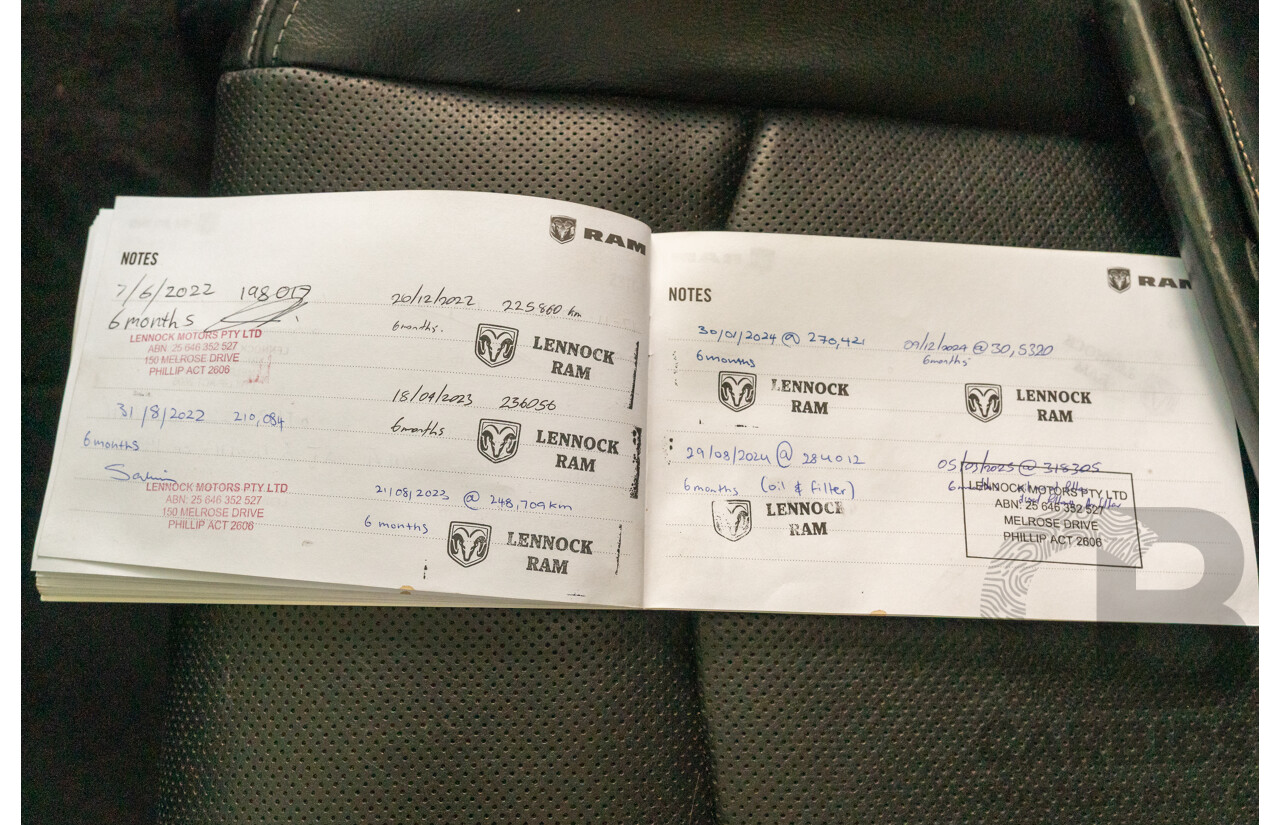 RAM
NOTES
7/6/2022 198 017
6 months
LENNOCK MOTORS PTY LTD
ABN: 25 646 352 527
150 MELROSE DRIVE
PHILLIP ACT 2606
31/8/2022 210,084
6 months
LENNOCK MOTORS PTY LTD
ABN: 25 646 352 527
150 MELROSE DRIVE
PHILLIP ACT 2606
20/12/2022 225860 km
6 months.
LENNOCK
RAM
18/04/2023 236056
6 months
LENNOCK
RAM
21/08/2023 @ 248,709km
6 months
LENNOCK
RAM
RAM
NOTES
30/01/2024 @ 270,421
6 months
LENNOCK
RAM
29/08/2024 @ 284012
6 months (oil & filter)
LENNOCK
RAM
09/12/2024 @ 30,5320
6 months
LENNOCK
RAM
05/05/2025 @ 318305
LENNOCK MOTORS PTY LTD
ABN: 25 646 352 527
MELROSE DRIVE
PHILLIP ACT 2606
B